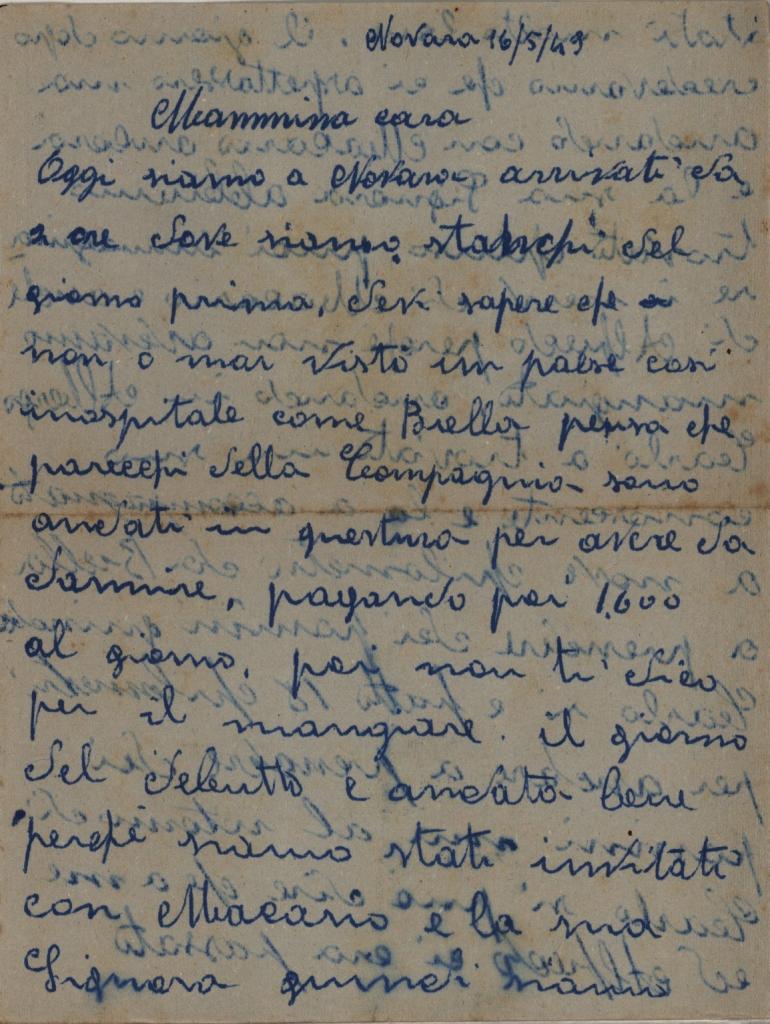 Novara 16/5/49
Mammina cara
Oggi siamo a Novara arrivati da
2 ore dove siamo stanchi del
giorno prima, devi sapere che
non o mai visto un paese cosi
inospitale come Biella pensa che
parecchi della Compagnia sono
andati in questura per avere da
dormire, pagando poi 1,600
al giorno, poi non ti dico
per il mangiare. il giorno
del debutto e andato bene
perché siamo stati invitati
con Macario e la sua
Signora quindi siamo